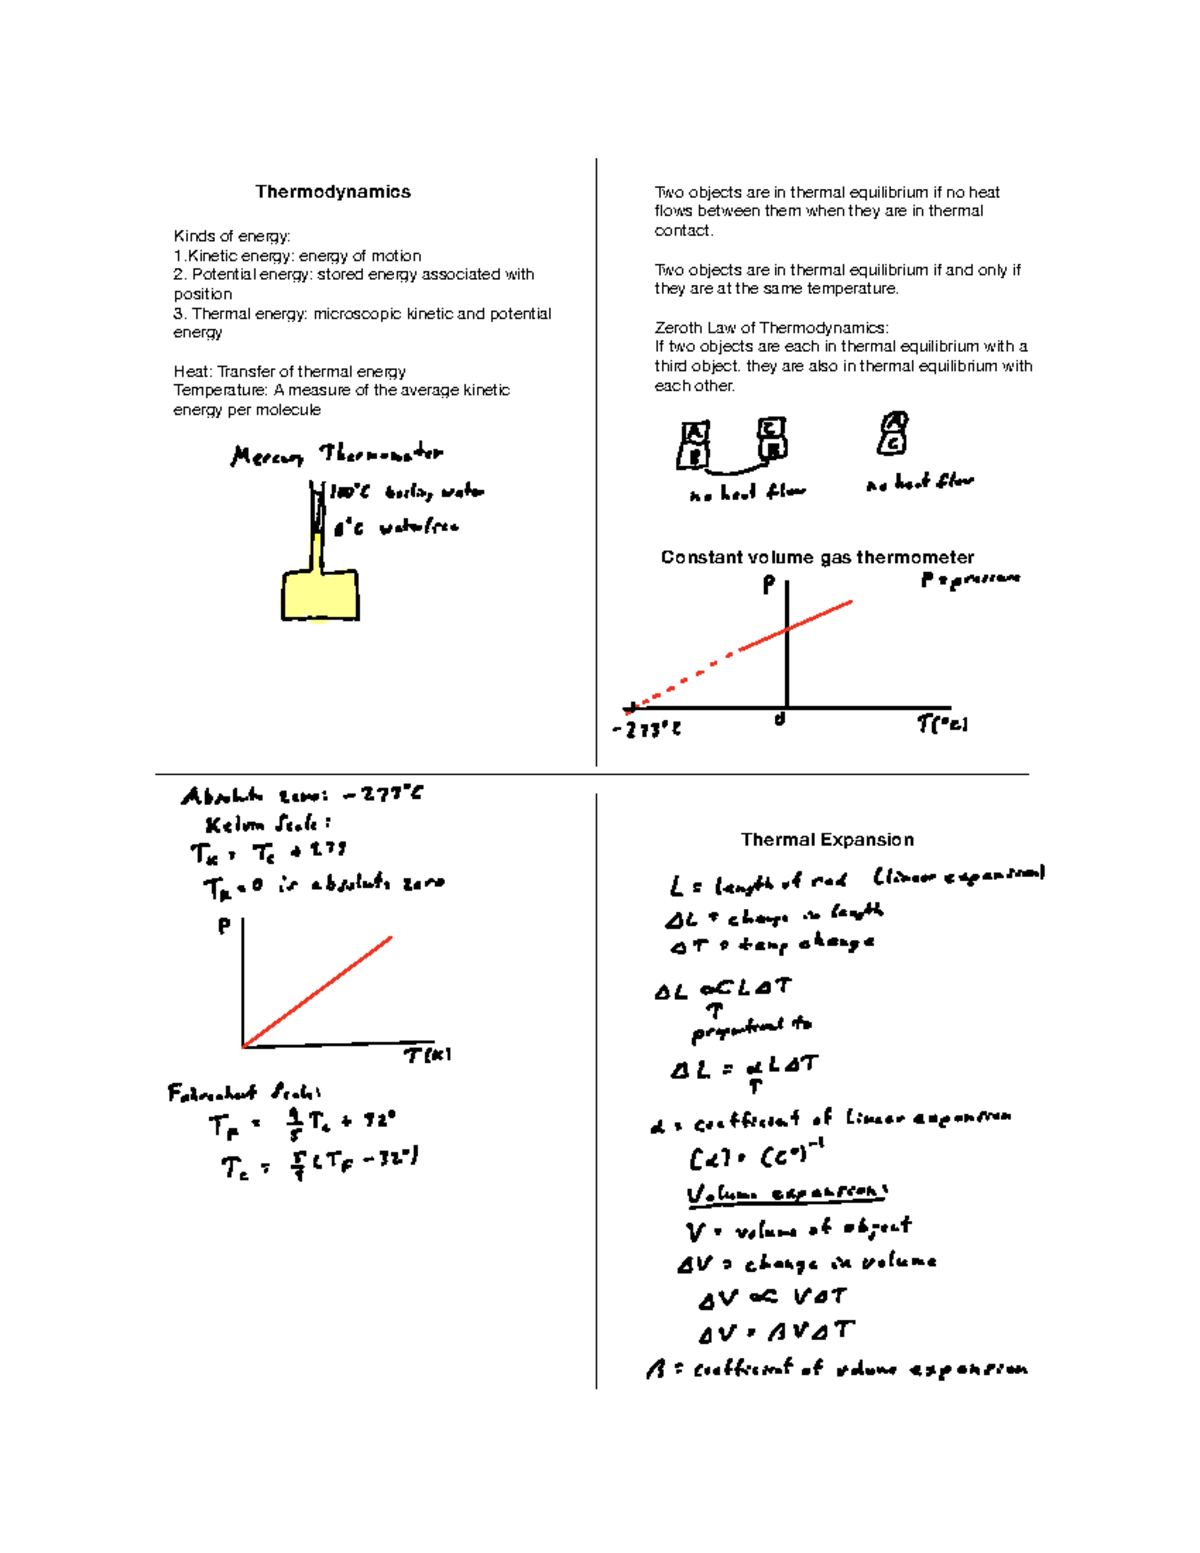 Thermodynamics
Kinds of energy:
1.Kinetic energy: energy of motion
2. Potential energy: stored energy associated with
position
3. Thermal energy: microscopic kinetic and potential
energy
Heat: Transfer of thermal energy
Temperature: A measure of the average kinetic
energy per molecule
Mercury Thermometer
100°C boiling water
0°C water/ice
Two objects are in thermal equilibrium if no heat
flows between them when they are in thermal
contact.
Two objects are in thermal equilibrium if and only if
they are at the same temperature.
Zeroth Law of Thermodynamics:
If two objects are each in thermal equilibrium with a
third object. they are also in thermal equilibrium with
each other.
A C A
B B C
no heat flow no heat flow
Constant volume gas thermometer
P P = pressure
-273°C 0 T(°C)
Absolute zero: -273°C
Kelvin Scale:
T_K = T_C + 273
T_K = 0 is absolute zero
P
T(K)
Fahrenheit Scale:
T_F = 9/5 T_C + 32°
T_C = 5/9 (T_F - 32°)
Thermal Expansion
L = length of rod (linear expansion)
ΔL = change in length
ΔT = temp change
ΔL ∝ LΔT
↑
proportional to
ΔL = αLΔT
↑
α = coefficient of linear expansion
[α] = (C°)⁻¹
Volume expansion:
V = volume of object
ΔV = change in volume
ΔV ∝ VΔT
ΔV = βVΔT
β = coefficient of volume expansion